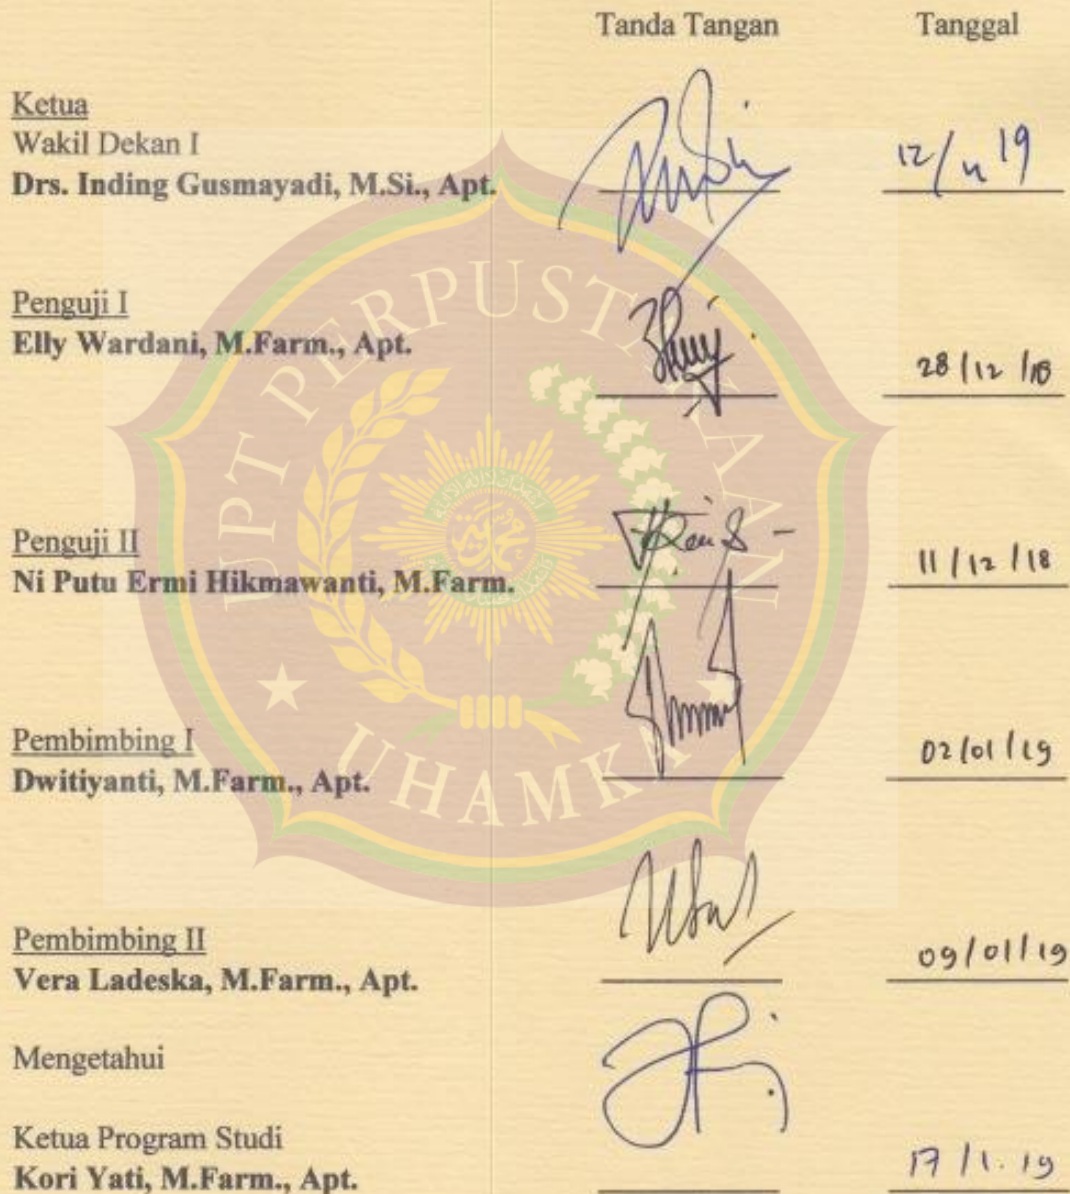 Tanda Tangan Tanggal
Ketua
Wakil Dekan I
Drs. Inding Gusmayadi, M.Si., Apt. 12/ 19
Penguji I
Elly Wardani, M.Farm., Apt.
28/12/18
Penguji II
Ni Putu Ermi Hikmawanti, M.Farm. 11/12/18
Pembimbing I
Dwitiyanti, M.Farm., Apt. 02/01/19
Pembimbing II
Vera Ladeska, M.Farm., Apt. 09/01/19
Mengetahui
Ketua Program Studi
Kori Yati, M.Farm., Apt. 17/1.19
UPT PERPUSTAKAAN
UHAMKA